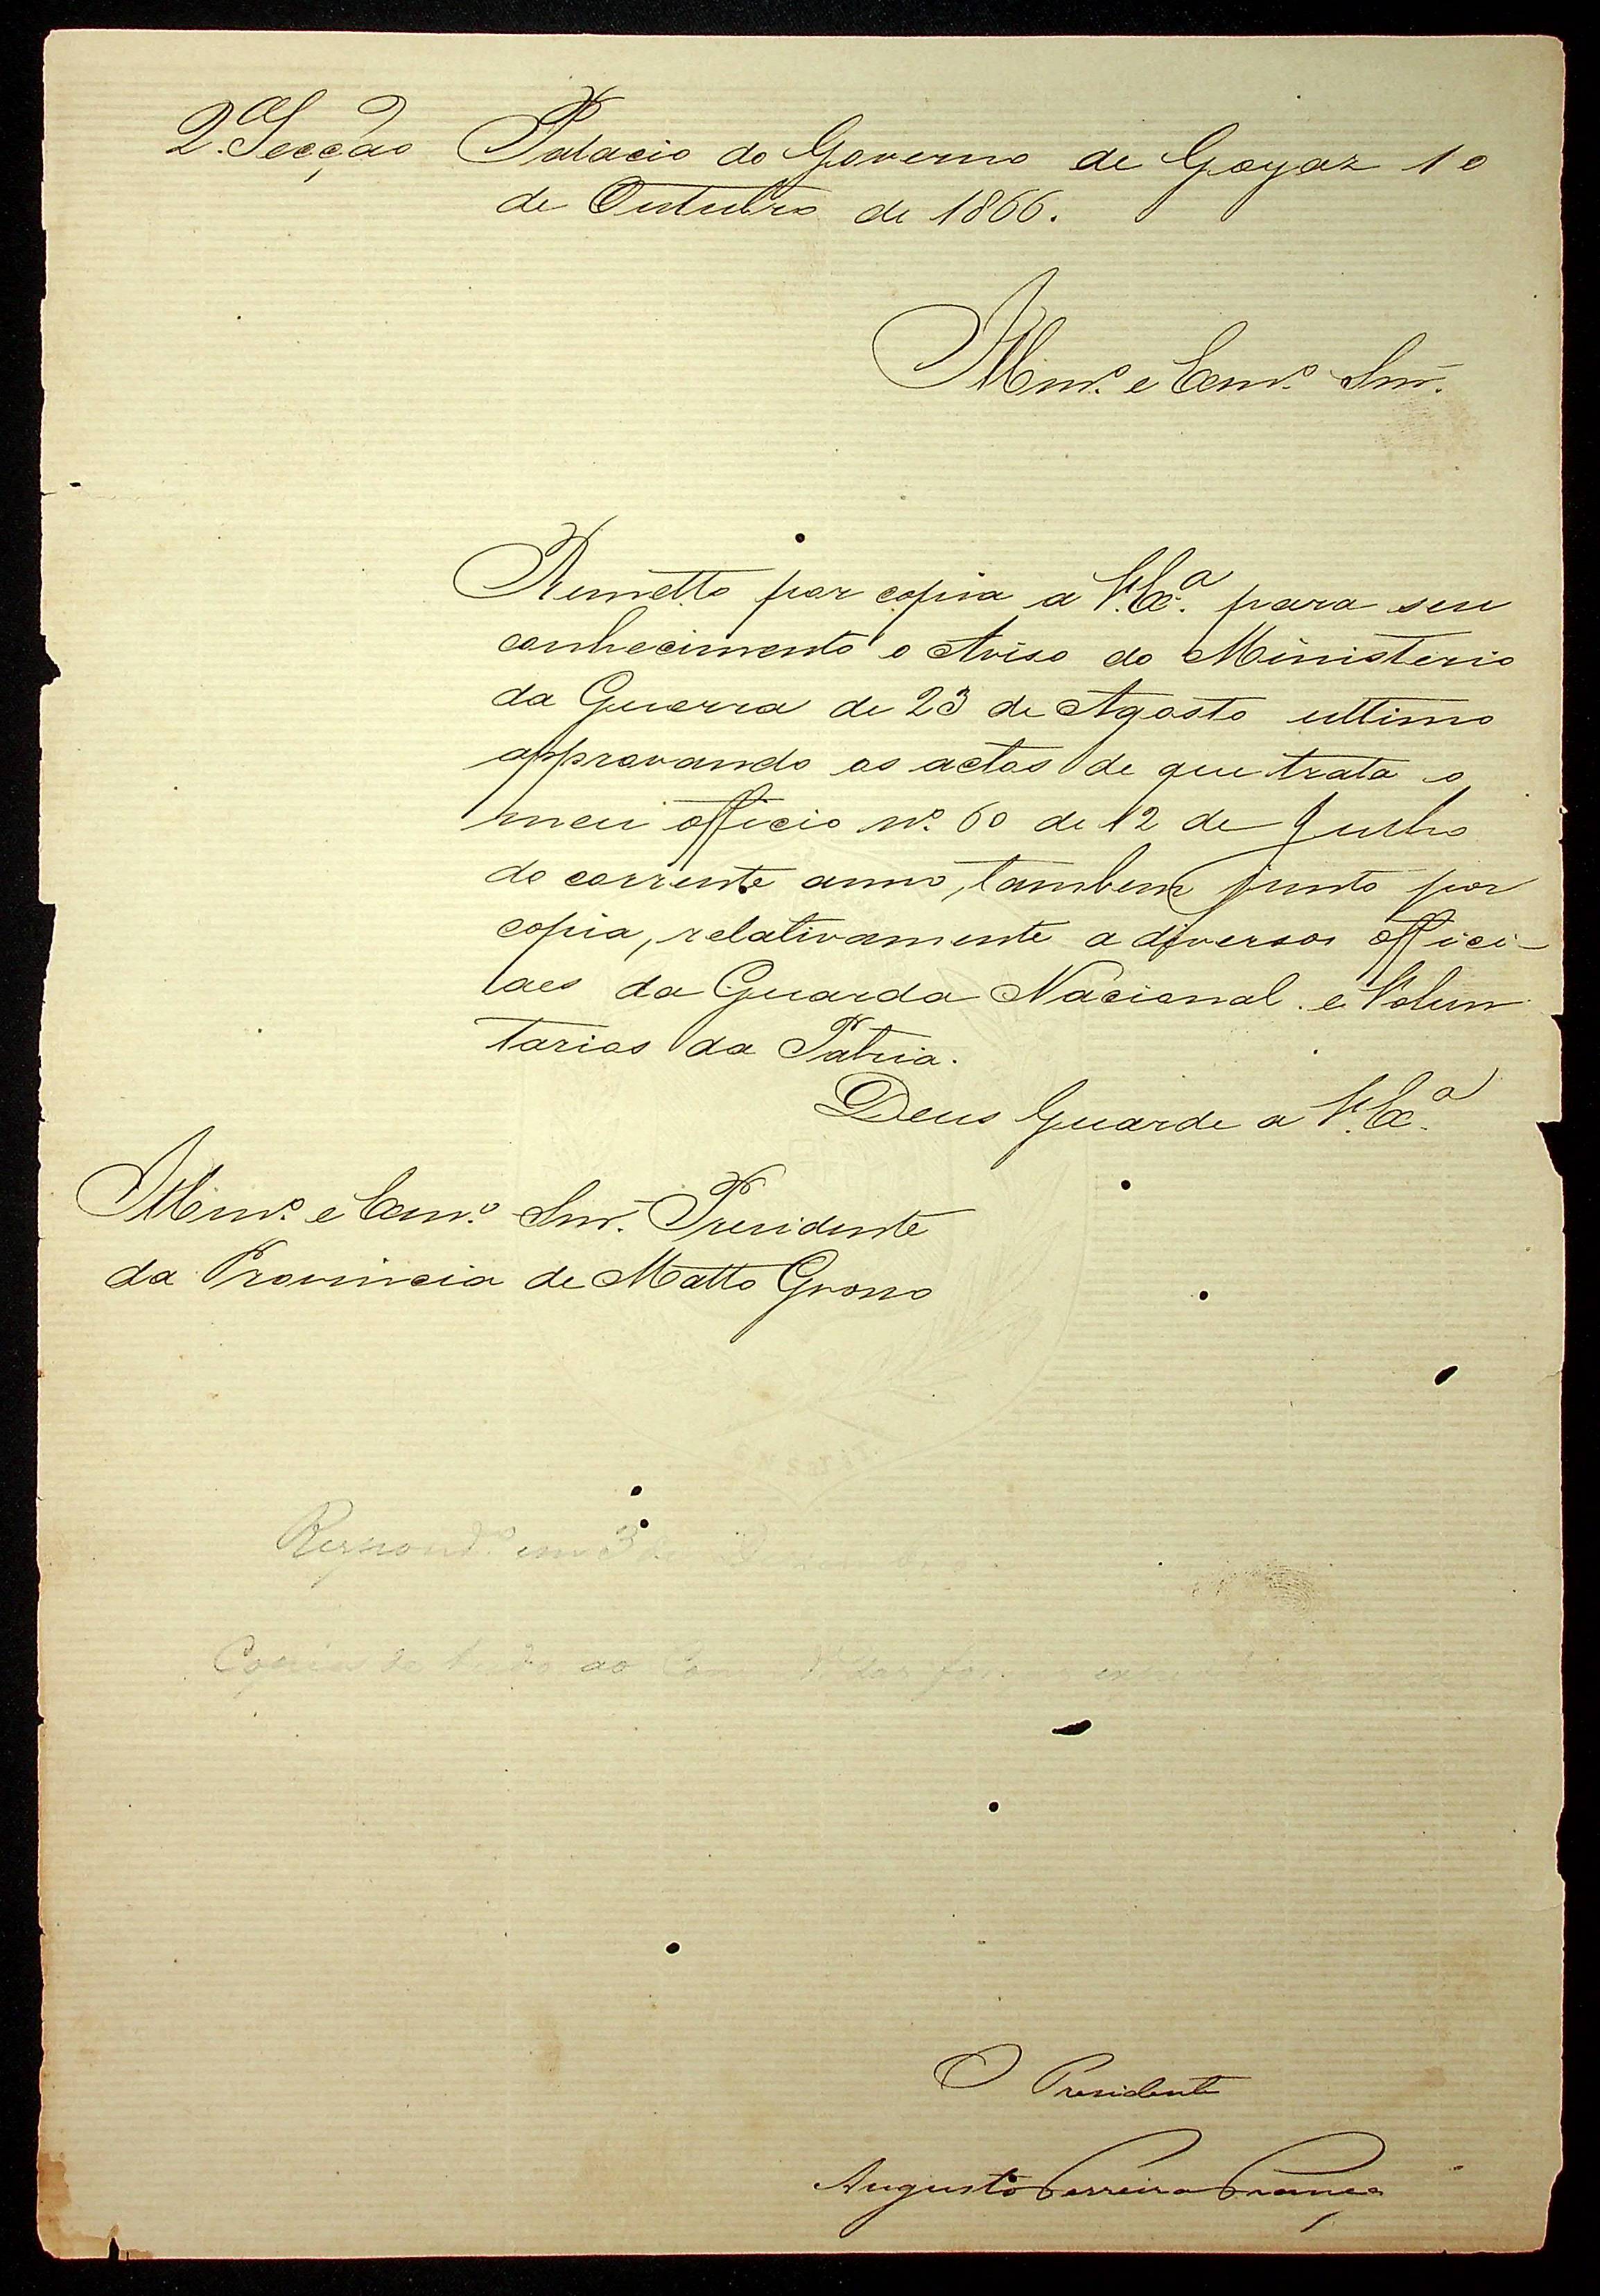 2.ª Secção Palacio do Governo de Goyaz 10
de Outubro de 1866.
Illmº. e Exmº. Snr.
Remetto por copia a V.Exª. para seu
conhecimento o Aviso do Ministerio
da Guerra de 23 de Agosto ultimo
approvando os actos de que trata o
meu officio nº. 60 de 12 de Julho
do corrente anno, tambem junto por
copia, relativamente a diversos offici-
aes da Guarda Nacional e Volun
tarios da Patria.
Deus Guarde a V.Exª.
Illmº. e Exmº. Snr. Presidente
da Provincia de Matto Grosso
Respondº. em 3 de
Copias de tudo ao
O Presidente
Augusto Ferreira França